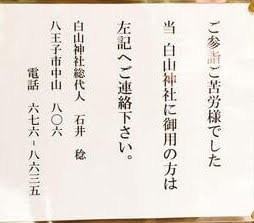 ご参詣ご苦労様でした
当 白山神社に御用の方は
左記へご連絡下さい。
白山神社総代人 石井 稔
八王子市中山 八〇六
電話 六七六-八六三五